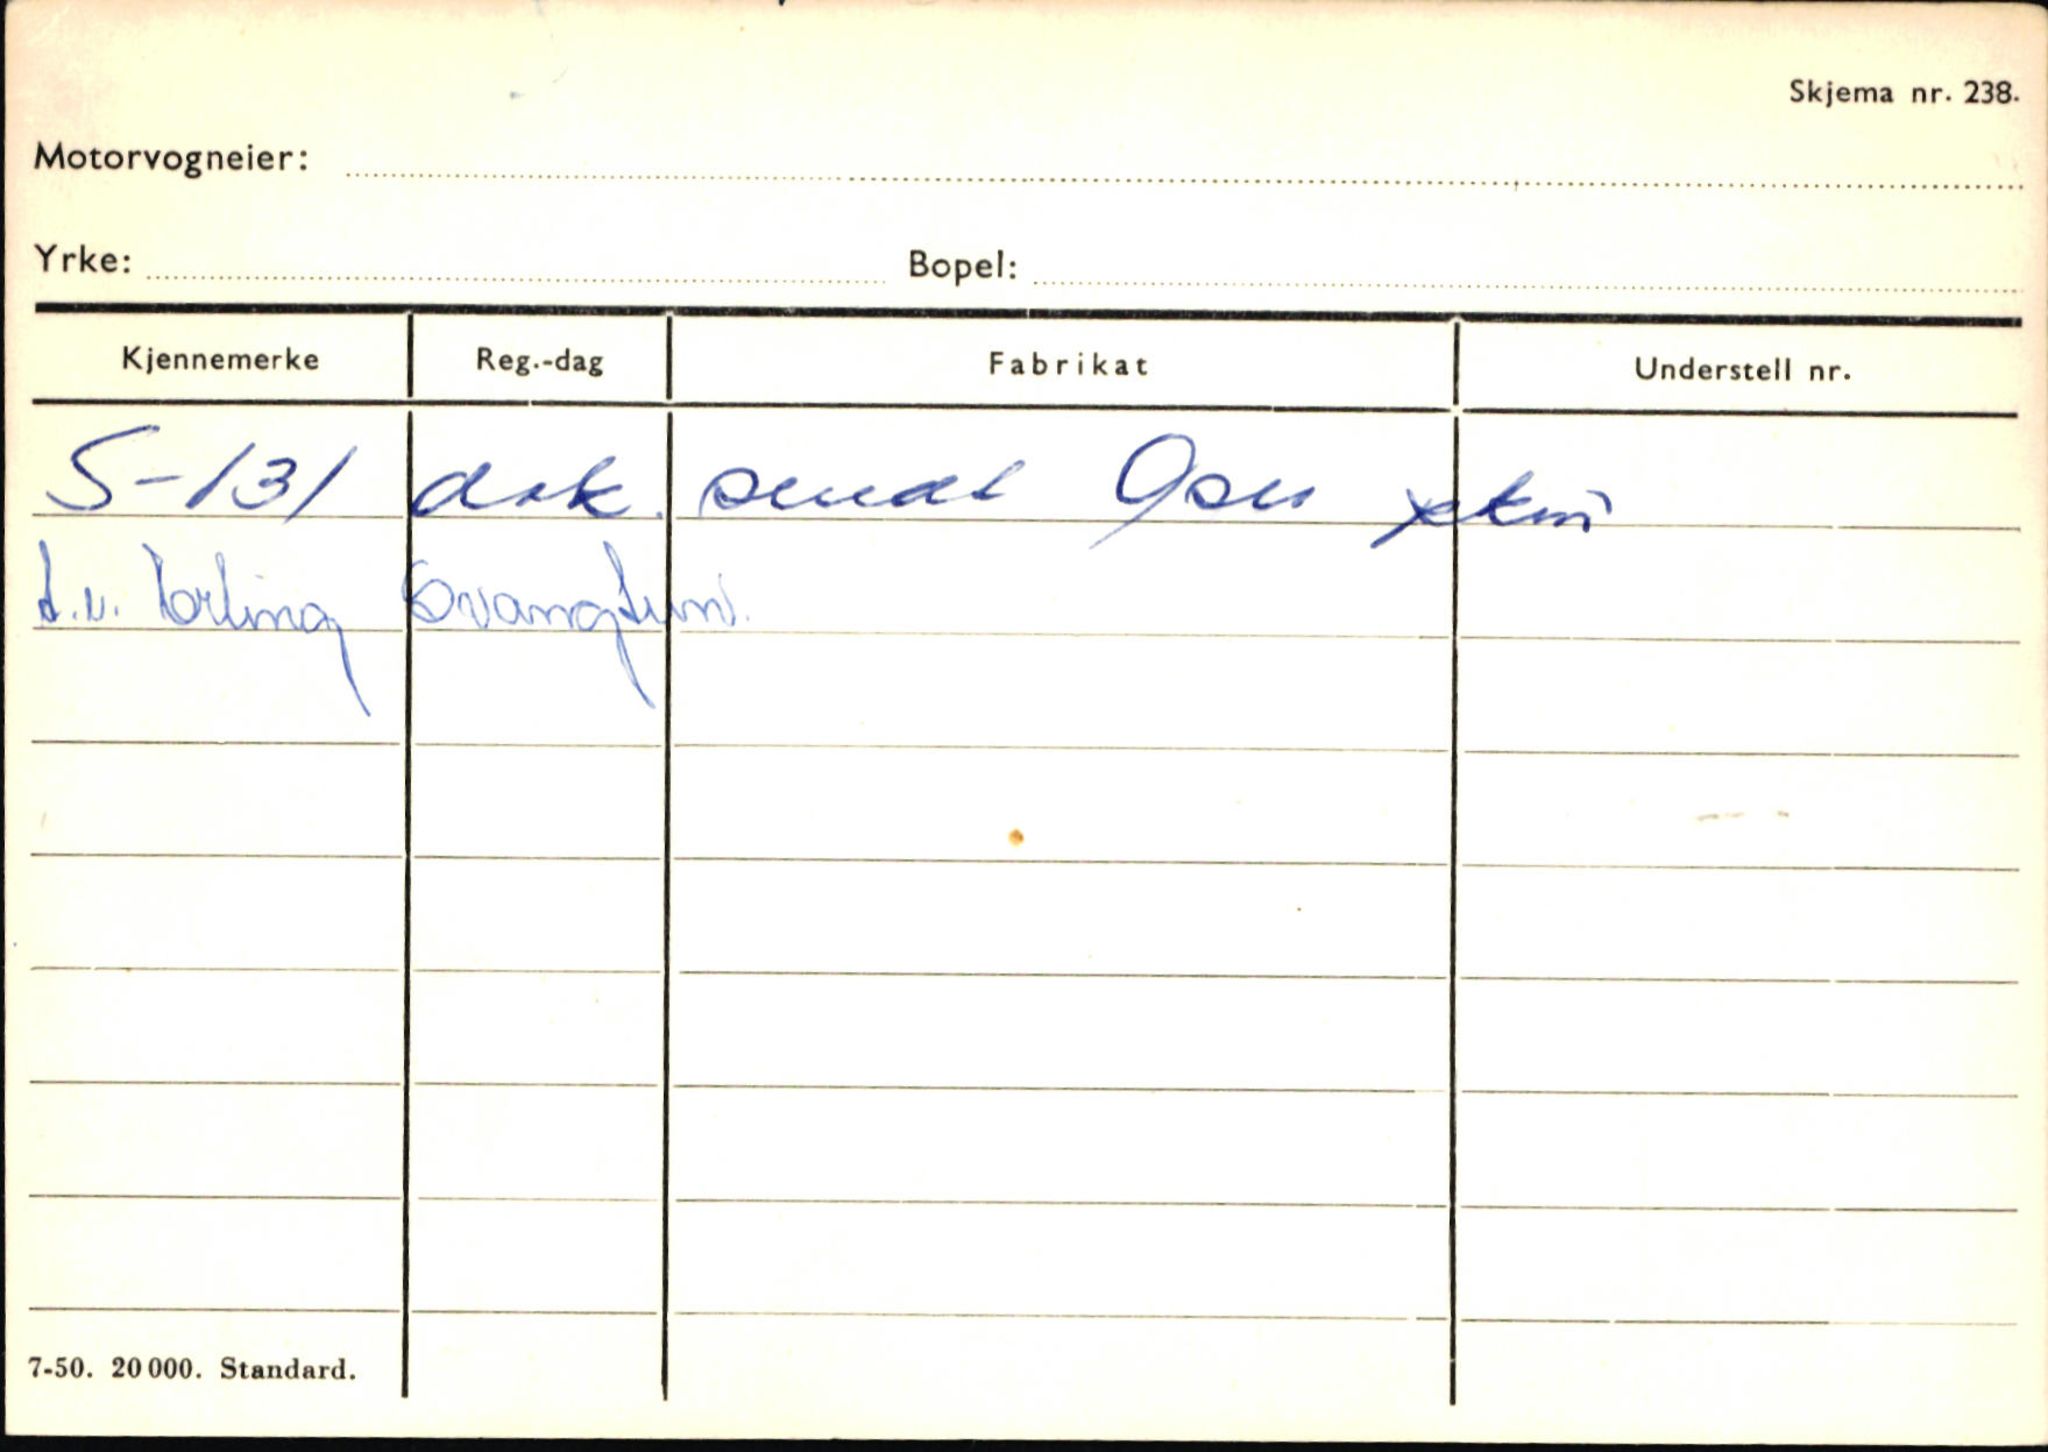 Skjema nr. 238.
Motorvogneier:
Yrke: Bopel:
Kjennemerke Reg.-dag Fabrikat Understell nr.
S-131 dok. sendt
t.v.
7-50. 20 000. Standard.